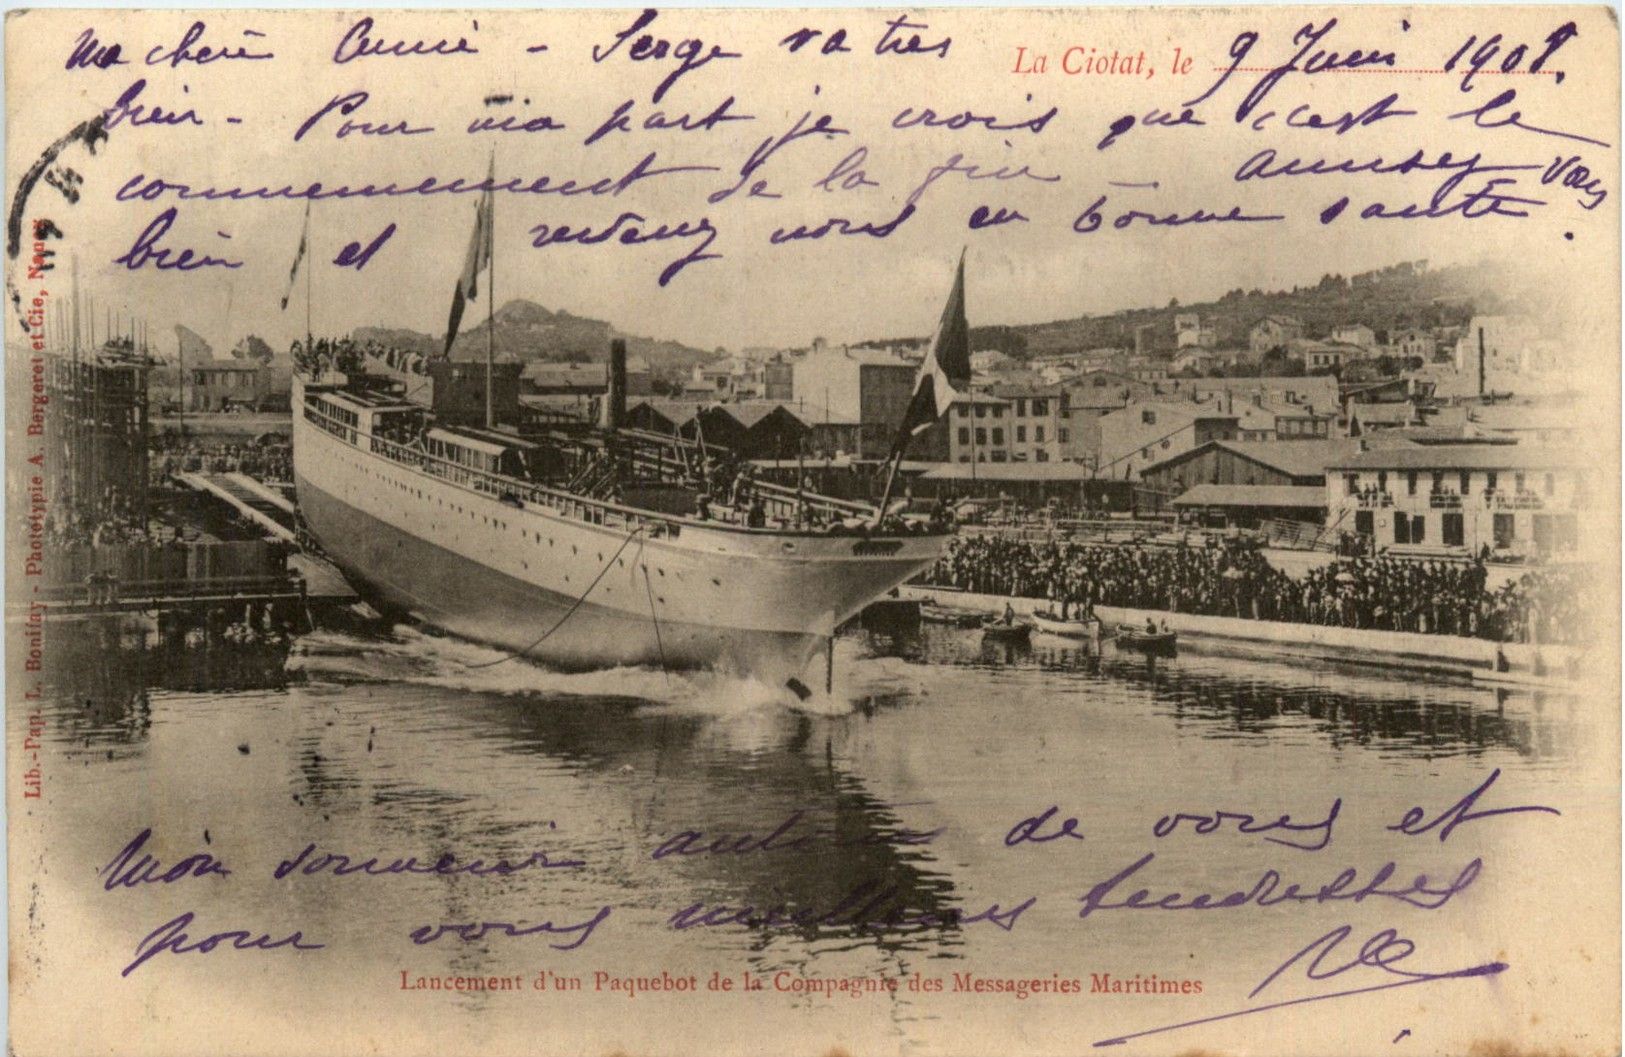 La Ciotat, le 9 Juin 1901.
Ma chère Amie - Serge va très
bien - Pour ma part je crois que c'est le
commencement de la fin - amusez vous
bien et revenez nous en bonne santé.
Mon souvenir autour de vous et
pour vous meilleures tendresses
Lancement d'un Paquebot de la Compagnie des Messageries Maritimes
Lib.-Pap. L. Bonifay - Phototypie A. Bergeret et Cie, Nancy